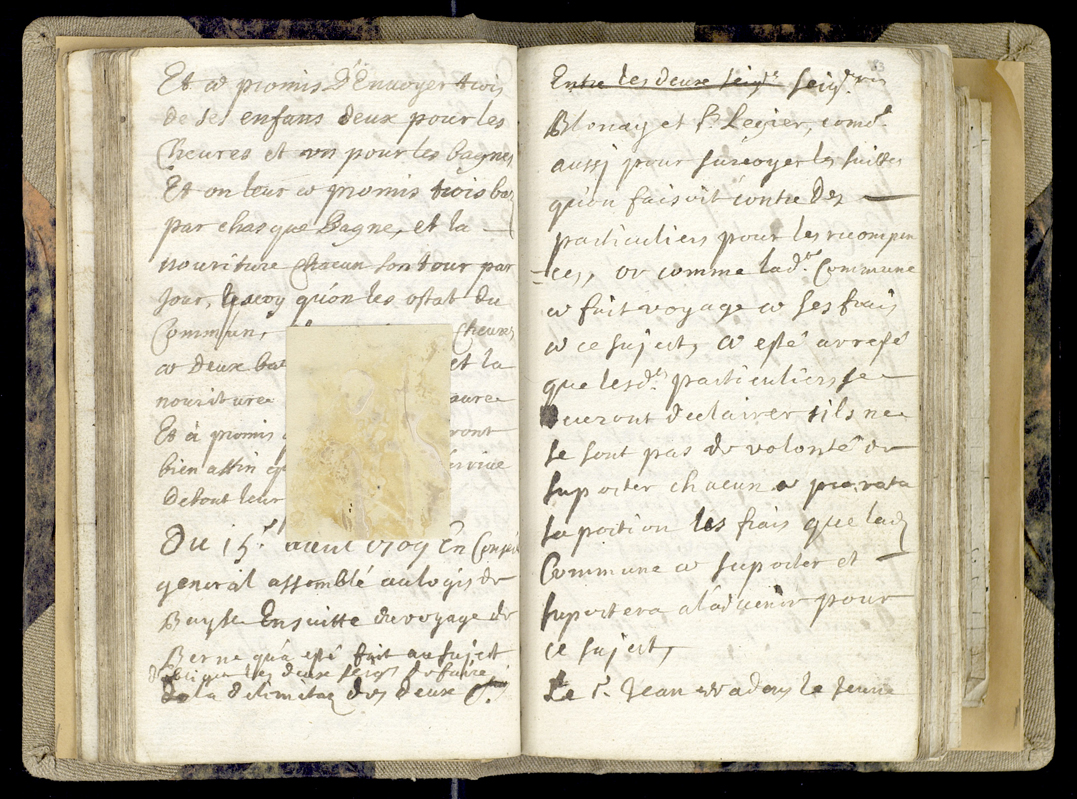 Et a promis d'Envoyer trois
de ses enfans deux pour les
Cheures et un pour les bagnes
Et on leur a promis trois baz
par chasque Bagne, et la
nouriture chacun son tour par
Jour, qu'on les ostat du
Commun, Cheures
a deux et la
nouriture
Et à promis ront
bien affin
de tout leur
Du 15.e auril 1709 En Conseil
general assemblé au logis de
Ensuitte du voyage de
Berne qu'a esté fait au sujet
les deux seigrs
de la delimitaõn des deux
Entre les deux seigrs seigries
Blonay et St Legier, comẽ
aussj pour suruoyer les suittes
qu'on faisoit contre des
particuliers pour les recompen
ces, or comme lad.te Commune
a fait voyage a ses frais
a ce sujet, a esté arresté
que lesd.ts particuliers se
deueront declairer sils ne
se sont pas de volonté de
suporter chacun a prorata
sa portion les frais que lad
Commune a suporter et
suportera a l'aduenir pour
ce sujet,
Le Sr. Jean le Jeune